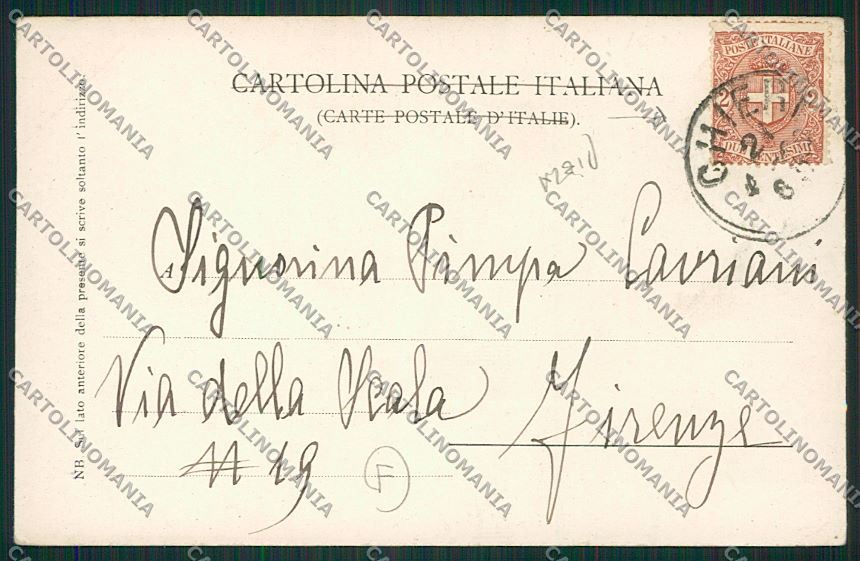 CARTOLINA POSTALE ITALIANA
(CARTE POSTALE D'ITALIE).
POSTE ITALIANE
2 2
DUE CENTESIMI
CHIETI
A Signorina Pimpa Lavriani
Via della Scala Firenze
N 19
F
NB. Sul lato anteriore della presente si scrive soltanto l'indirizzo
CARTOLINOMANIA